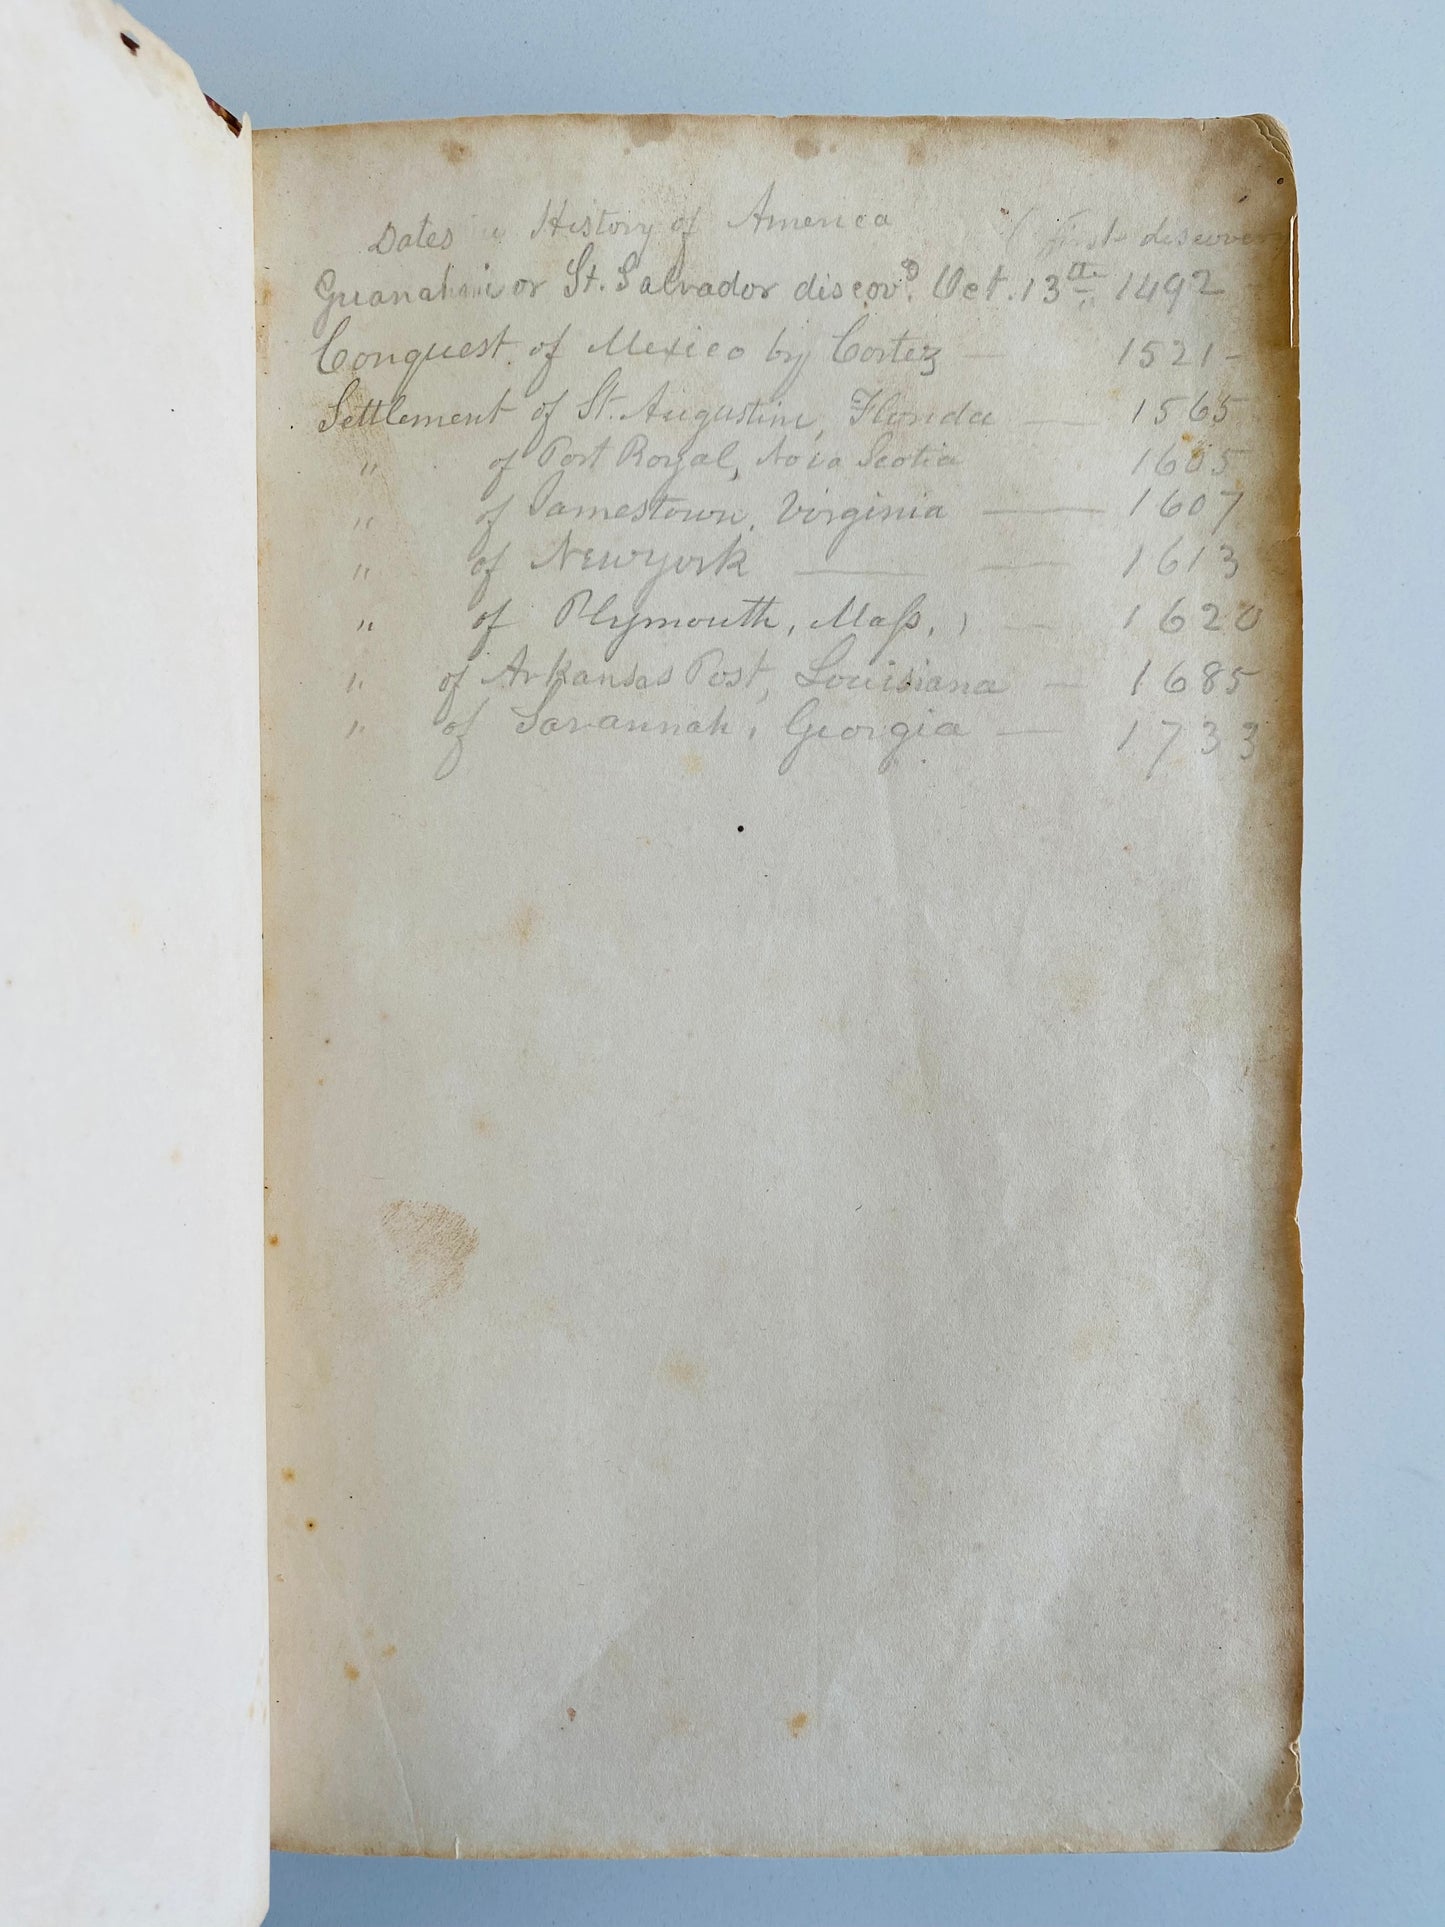 Dates in History of America ( first discover
Guanahani or St. Salvador discovᴰ. Oct. 13th 1492 -
Conquest of Mexico by Cortez — 1521 -
Settlement of St. Augustine, Florida — 1565
" of Port Royal, Nova Scotia 1605
" of Jamestown, Virginia — 1607
" of Newyork — — 1613
" of Plymouth, Maſs, ) — 1620
" of Arkansas Post, Louisiana — 1685
" of Savannah, Georgia — 1733